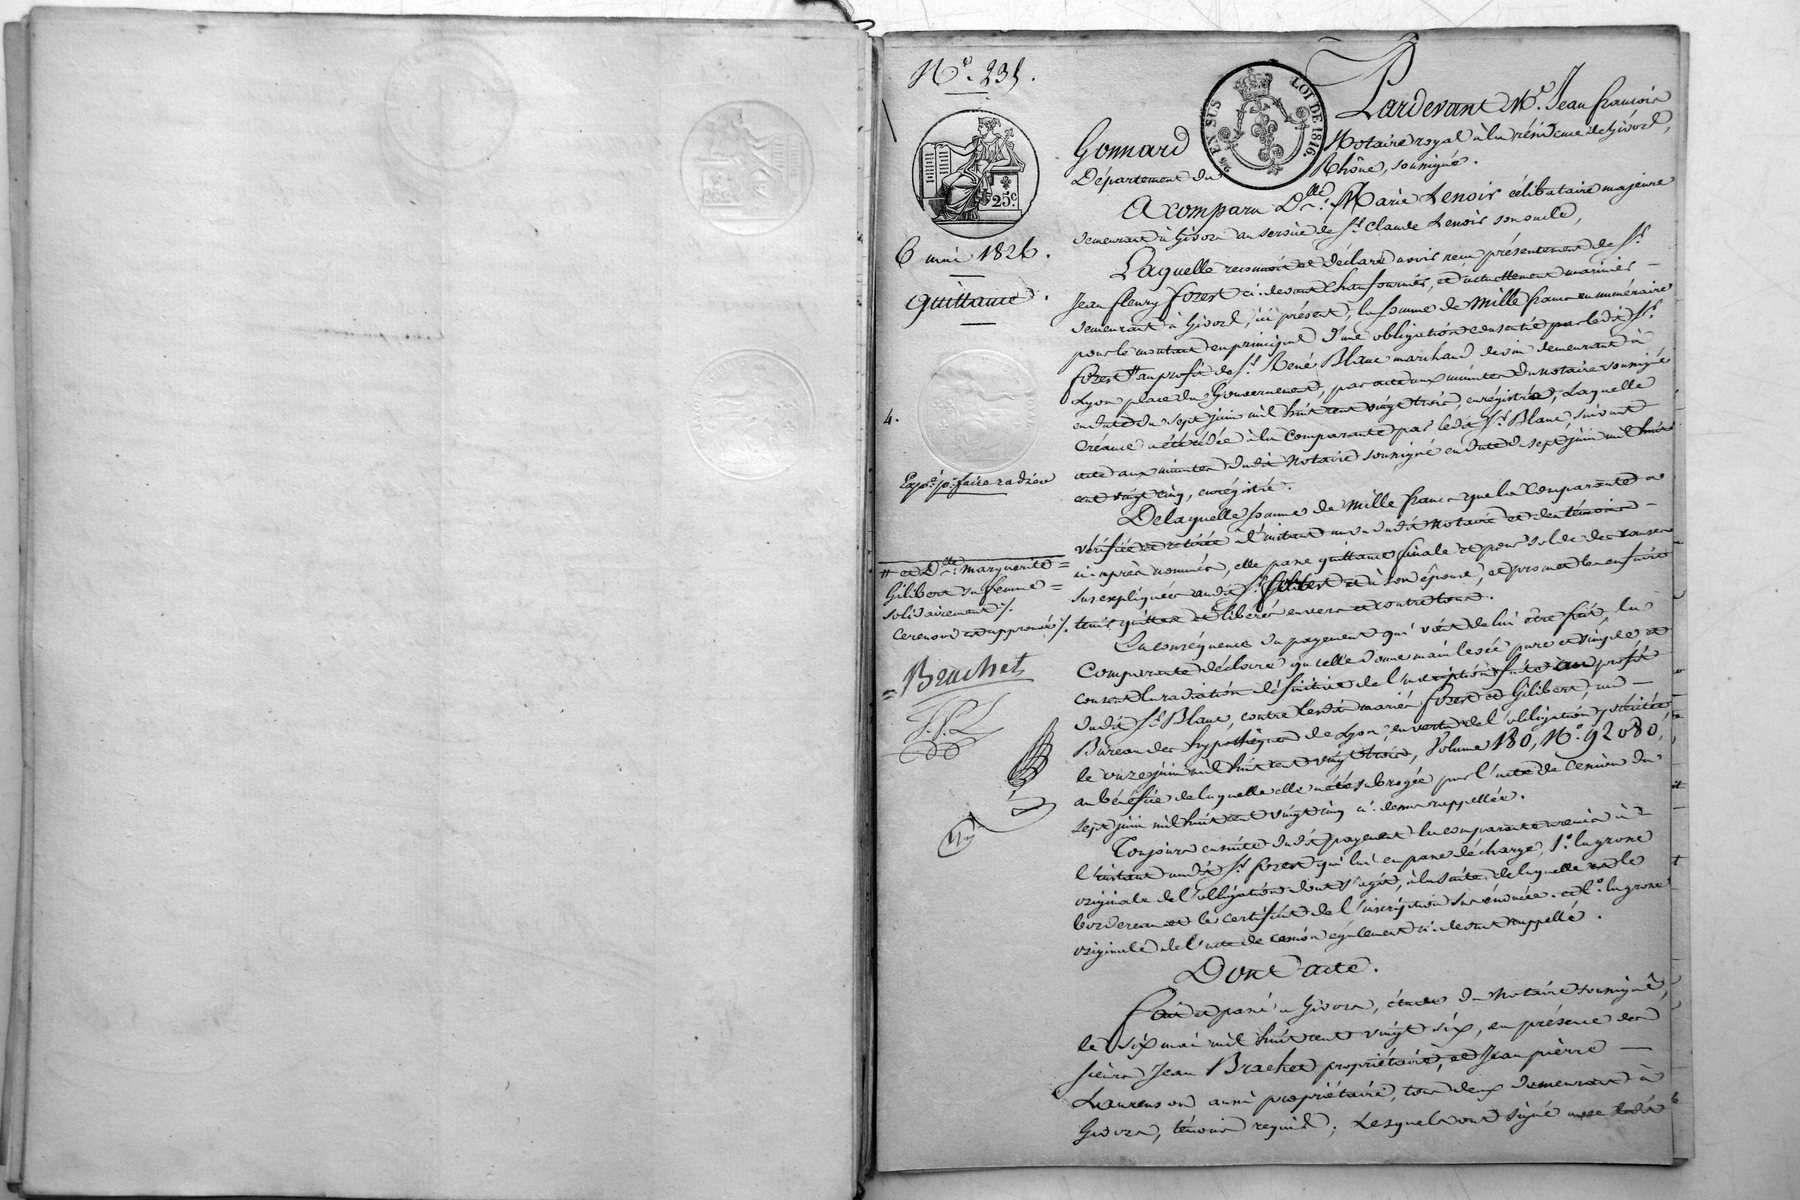 N.º 235.
25 EN SUS
LOI DE 1816.
25 c.
6 mai 1826.
Quittance.
4.
Exp.é p.r faire radier
# et D.lle Marguerite =
Gilibert sa femme =
solidairement ./.
Le renvoi approuvé ./.
= Brachet
J.P.L
Pardevant M.e Jean françois
Gonnard Notaire royal à la résidence de Givors,
Département du Rhône, soussigné.
A comparu D.lle Marie Lenoir célibataire majeure
demeurant à Givors au service de S.r Claude Lenoir son oncle,
Laquelle reconnoit et déclare avoir reçu présentement de S.r
Jean fleury forest ci-devant chaufournier, et actuellement marinier
demeurant à Givors, ici présent, la somme de Mille francs en numéraire
pour le montant en principal d'une obligation consentie par ledit S.r
forest # au profit de S.r René Blanc marchand de vin demeurant à
Lyon place du Gouvernement, par acte aux minutes du notaire soussigné
en date du sept juin mil huit cent vingt trois, enregistré, Laquelle
créance a été cédée à la comparante par ledit S.r Blanc, suivant
acte aux minutes dudit Notaire soussigné en date du sept juin mil huit
cent vingt cinq, enregistré.
De laquelle somme de Mille francs que la comparante a
vérifiée et retirée à l'instant au vu dudit Notaire et des témoins
ci-après nommés, elle passe quittance finale et pour solde des causes
sus expliquées audit S.r forest et à son épouse, et promet les en faire
tenir quittes et libérés envers et contre tous.
En conséquence du payement qui vient de lui être fait, la
comparante déclare qu'elle donne mainlevée pure et simple et
consent la radiation définitive de l'inscription faite au profit
dudit S.r Blanc, contre lesdits mariés forest et Gilibert, au
Bureau des hypothèques de Lyon en vertu de l'obligation précitée
le onze juin mil huit cent vingt trois, Volume 180, N.º 92080,
au bénéfice de laquelle elle a été subrogée par l'acte de cession du
sept juin mil huit cent vingt cinq ci-dessus rappellée.
Toujours ensuite dudit payement la comparante a remis à
l'instant audit S.r forest qui lui en passe décharge, 1.º la grosse
originale de l'obligation dont s'agit, à la suite de laquelle est le
bordereau et le certificat de l'inscription sus énoncée. et 2.º la grosse
originale de l'acte de cession également ci-devant rappellé.
Dont acte.
Fait et passé à Givors, étude du Notaire soussigné,
le six mai mil huit cent vingt six, en présence des
sieurs Jean Brachet propriétaire, et Jean pierre
Laurenson aussi propriétaire, tous deux demeurant à
Givors, témoins requis; Lesquels ont signé avec ledit